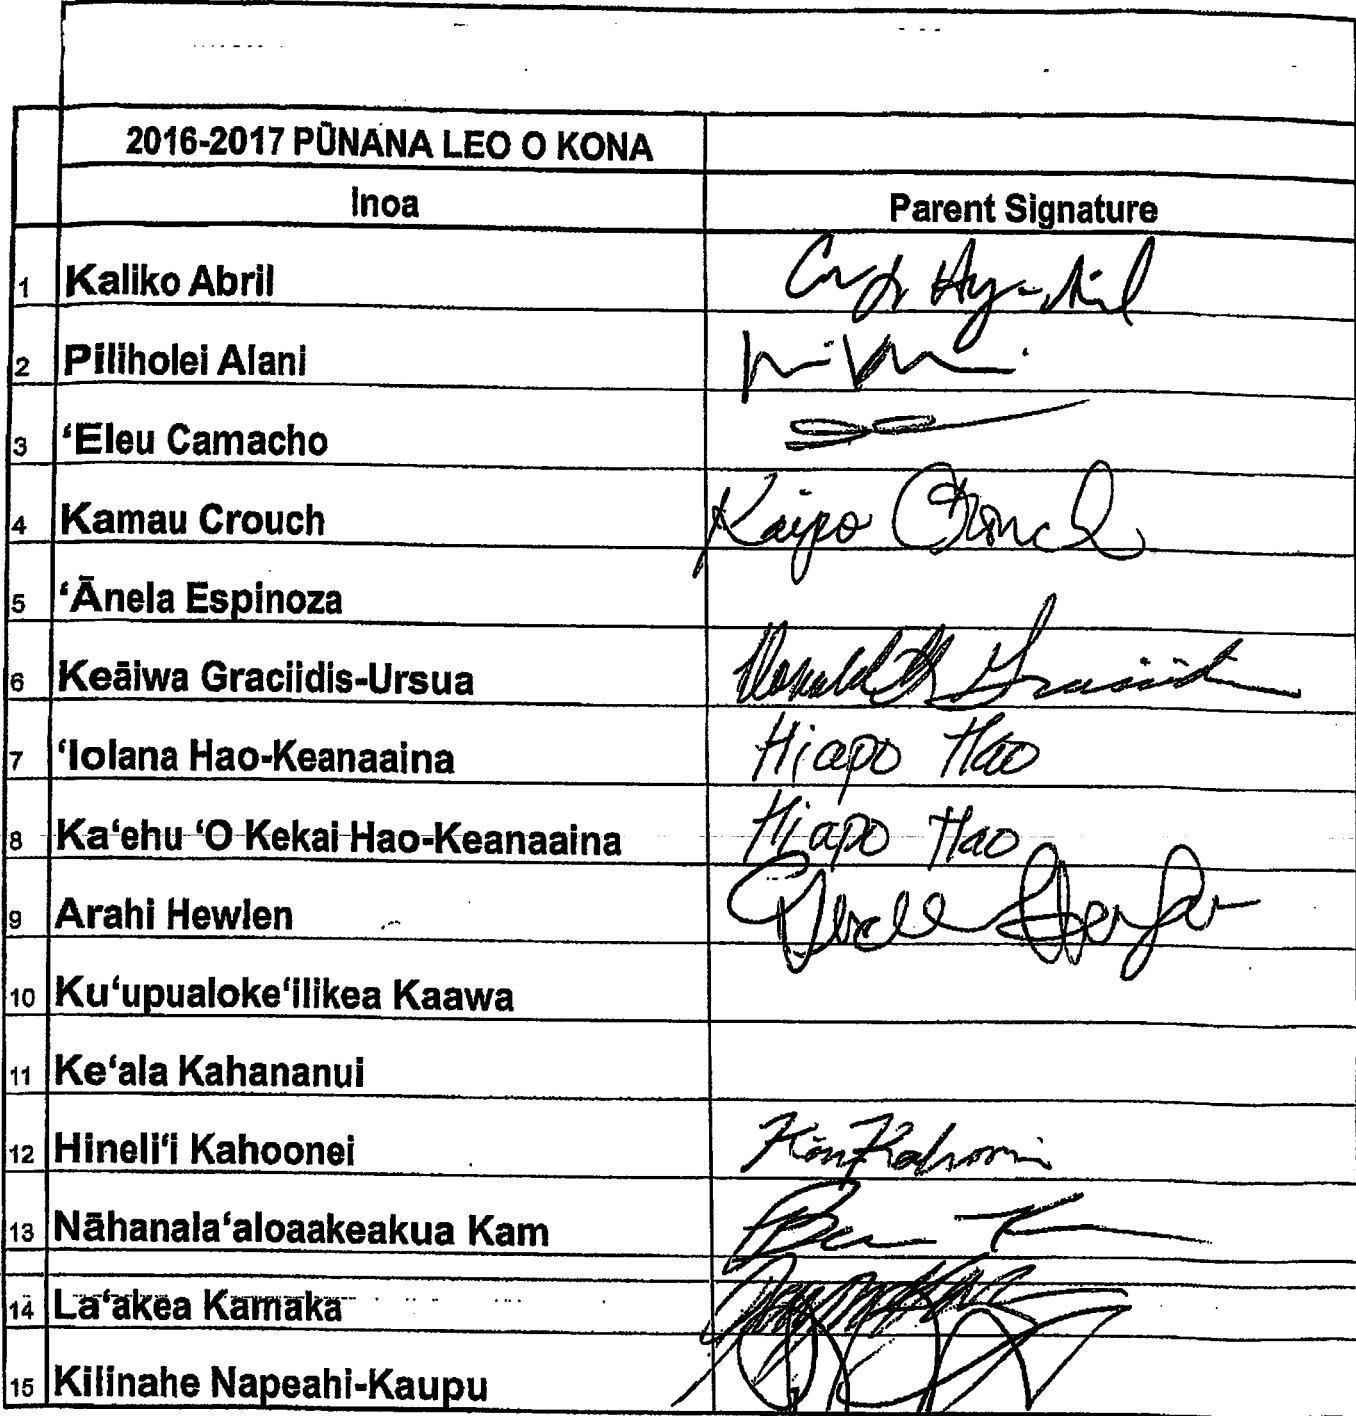 2016-2017 PŪNANA LEO O KONA
Inoa Parent Signature
1 Kaliko Abril
2 Piliholei Alani
3 ʻEleu Camacho
4 Kamau Crouch Kaipo Crouch
5 ʻĀnela Espinoza
6 Keāiwa Graciidis-Ursua Ronald
7 ʻIolana Hao-Keanaaina Hiapo Hao
8 Kaʻehu ʻO Kekai Hao-Keanaaina Hiapo Hao
9 Arahi Hewlen
10 Kuʻupualokeʻilikea Kaawa
11 Keʻala Kahananui
12 Hineliʻi Kahoonei
13 Nāhanalaʻaloaakeakua Kam
14 Laʻakea Kamaka
15 Kilinahe Napeahi-Kaupu